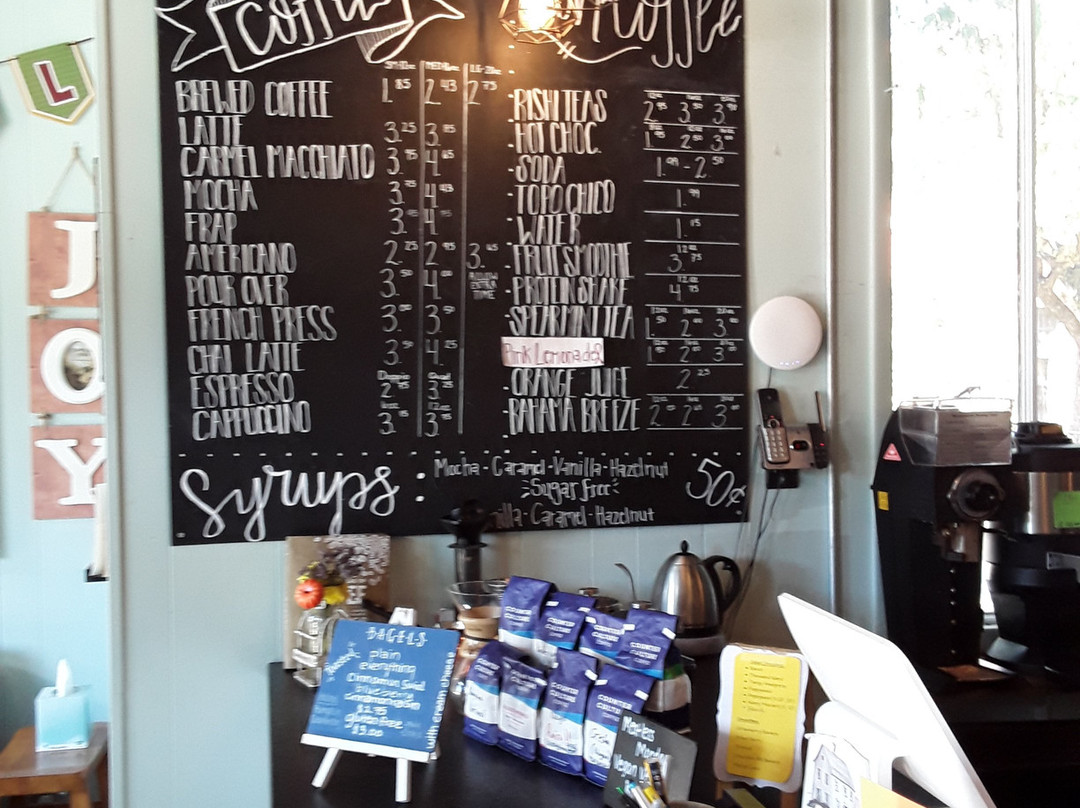 Coffee
Coffee
L
JOY
SM-12oz MED-16oz LG-20oz
BREWED COFFEE 1.85 2.43 2.75
LATTE 3.25 3.85
CARMEL MACCHIATO 3.95 4.65
MOCHA 3.75 4.43
FRAP 3.95 4.75
AMERICANO 2.25 2.95 3.45
POUR OVER 3.50 4.00 ALLOW EXTRA TIME
FRENCH PRESS 3.00 3.50
CHAI LATTE 3.50 4.25
Doppio Quad
ESPRESSO 2.45 3.25
CAPPUCCINO 3.15 3.95
·RISHI TEAS 2.95 3.50 3.95
·HOT CHOC. 1.95 2.50 3.00
·SODA 1.99 - 2.50
·TOPO CHICO 1.99
·WATER 1.15
12oz
·FRUIT SMOOTHIE 3.75
12oz
·PROTEIN SHAKE 4.75
·SPEARMINT TEA 1.50 2.00 3.00
Pink Lemonade 1.50 2.00 3.00
·ORANGE JUICE 2.25
·BAHAMA BREEZE 2. 2. 3.
Syrups: Mocha - Caramel - Vanilla - Hazelnut 50¢
Sugar Free
Vanilla - Caramel - Hazelnut
BAGELS
plain
everything
Cinnamon Swirl
blueberry
$1.95
gluten free
$3.00
with cream cheese
COUNTER CULTURE COFFEE
COUNTER CULTURE
COUNTER CULTURE
COUNTER CULTURE
COUNTER CULTURE
COUNTER CULTURE
COUNTER CULTURE
Meatless
Monday
Vegan